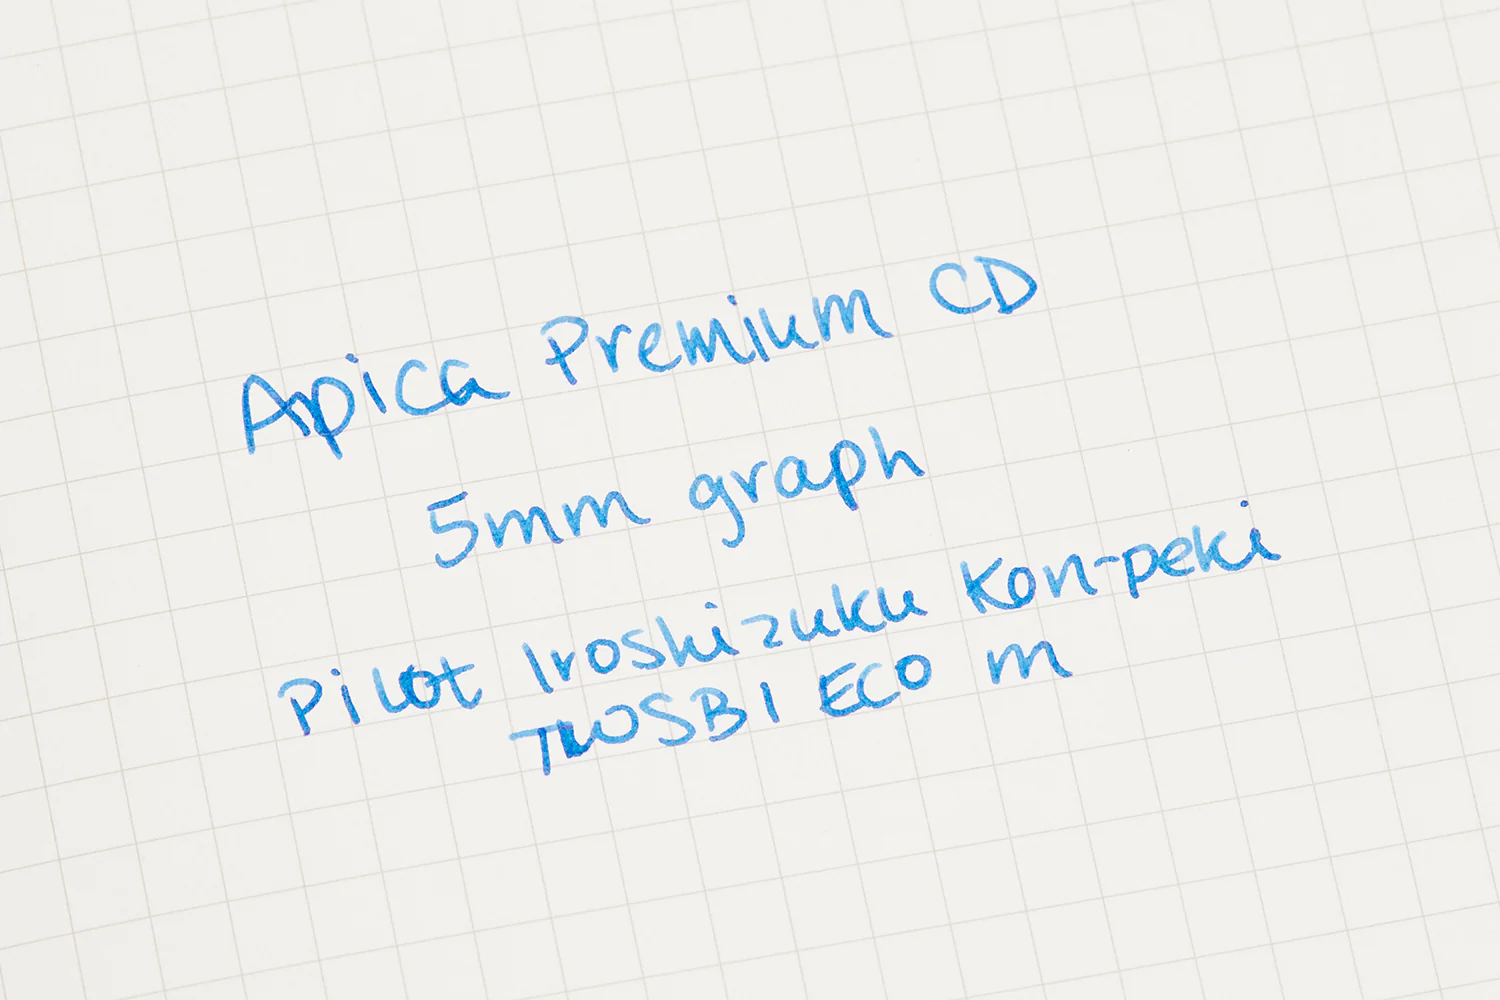 Apica Premium CD
5mm graph
Pilot Iroshizuku Kon-peki
TWSBI ECO m